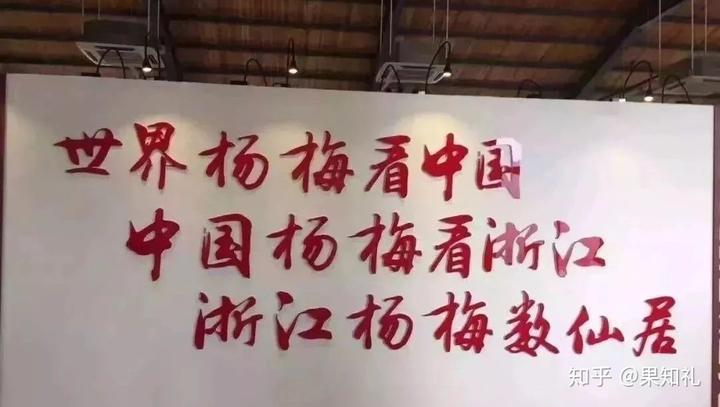 世界杨梅看中国
中国杨梅看浙江
浙江杨梅数仙居
知乎 @果知礼